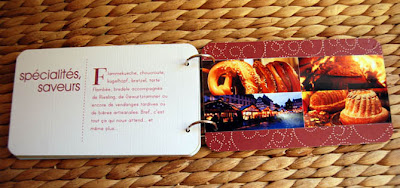 spécialités,
saveurs
Flammekueche, choucroute,
kugelhopf, bretzel, tarte
flambée, bredele accompagnés
de Riesling, de Gewurtzraminer ou
encore de vendanges tardives ou
de bières artisanales. Bref, c'est
tout ça qui nous attend... et
même plus...